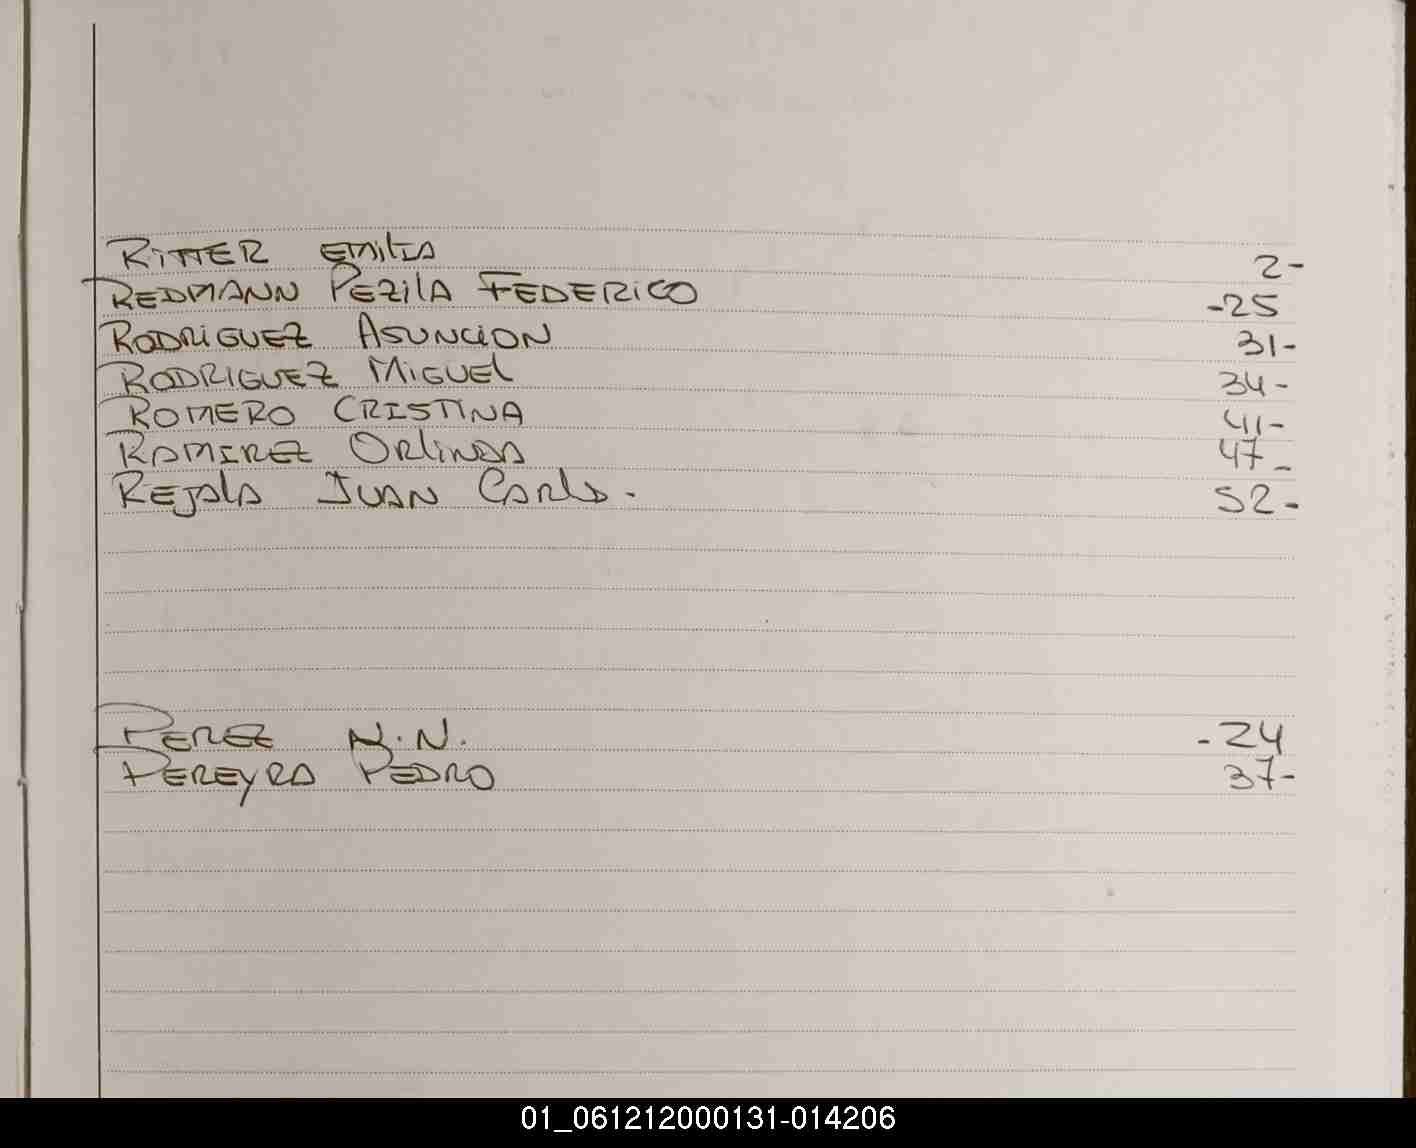 RITTER EMILIA 2-
REDMANN PEZILA FEDERICO -25
RODRIGUEZ ASUNCION 31-
RODRIGUEZ MIGUEL 34-
ROMERO CRISTINA 41-
RAMIREZ ORLINDA 47-
REJALA JUAN CARLO. 52-
PEREZ N.N. -24
PEREYRA PEDRO 37-
01_061212000131-014206